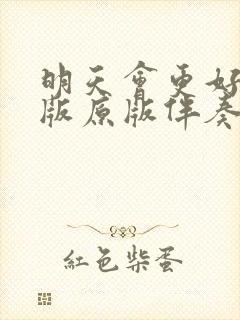 明天會更好
版原版伴奏
紅色柴蛋